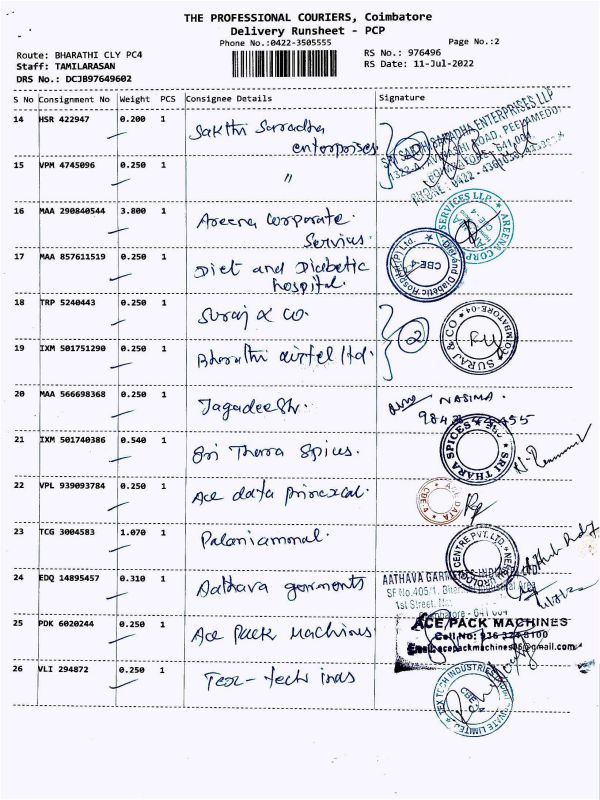 THE PROFESSIONAL COURIERS, Coimbatore
Delivery Runsheet - PCP
Phone No.:0422-3505555
Page No.:2
Route: BHARATHI CLY PC4
RS No.: 976496
Staff: TAMILARASAN
RS Date: 11-Jul-2022
DRS No.: DCJB97649602
S No Consignment No Weight PCS Consignee Details Signature
14 HSR 422947 0.200 1 Sakthi Sarradha enterprises
SRI SAKTHI SARADHA ENTERPRISES LLP
15 VPM 4745096 0.250 1 "
16 MAA 290840544 3.800 1 Areena Corporate Services.
SERVICES LLP ★ AREENA CORP
17 MAA 857611519 0.250 1 Diet and Diabetic hospital.
Diet and Diabetic Hospital (P) Ltd. CBE-4
18 TRP 5240443 0.250 1 Suraj & Co.
SURAJ & CO ★ COIMBATORE-04
19 IXM 501751290 0.250 1 Bharathi airtel ltd. 2
20 MAA 566698368 0.250 1 Jagadeesh. NASIMA
21 IXM 501740386 0.540 1 Sri Thara Spices.
SRI THARA SPICES
22 VPL 939093784 0.250 1 Ace data
ACE DATA CBE
23 TCG 3004583 1.070 1 Palaniammal.
CENTRE PVT. LTD
24 EDQ 14895457 0.310 1 Aathava garments
AATHAVA GARMENTS
SF No.405/1,
1st Street,
25 PDK 6020244 0.250 1 Ace Pack Machines
ACE PACK MACHINES
Cell No:
26 VLI 294872 0.250 1 Tex-tech inds
TEX TECH INDUSTRIES PRIVATE LIMITED CBE